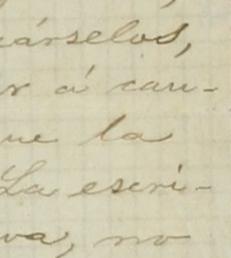 cárselos,
r á cau-
ue la
La escri-
va, no